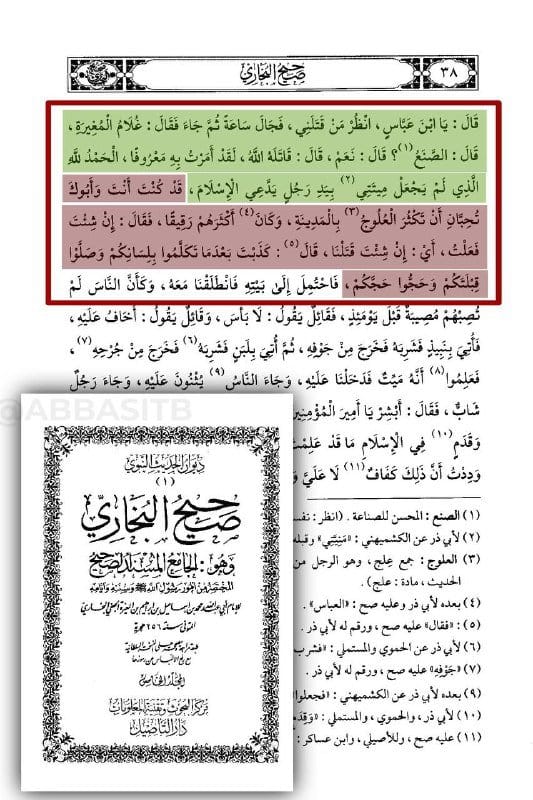 ٣٨
صحيح البخاري
قَالَ : يَا ابْنَ عَبَّاسٍ ، انْظُرْ مَنْ قَتَلَنِي ، فَجَالَ سَاعَةً ثُمَّ جَاءَ فَقَالَ : غُلَامُ الْمُغِيرَةِ ،
قَالَ : الصَّنَعُ (١)؟ قَالَ : نَعَمْ ، قَالَ : قَاتَلَهُ اللَّهُ ، لَقَدْ أَمَرْتُ بِهِ مَعْرُوفًا ، الْحَمْدُ لِلَّهِ
الَّذِي لَمْ يَجْعَلْ مِيتَتِي (٢) بِيَدِ رَجُلٍ يَدَّعِي الْإِسْلَامَ ، قَدْ كُنْتَ أَنْتَ وَأَبُوكَ
تُحِبَّانِ أَنْ تَكْثُرَ الْعُلُوجُ (٣) بِالْمَدِينَةِ ، وَكَانَ (٤) أَكْثَرَهُمْ رَقِيقًا ، فَقَالَ : إِنْ شِئْتَ
فَعَلْتُ ، أَيْ : إِنْ شِئْتَ قَتَلْنَا ، قَالَ (٥) : كَذَبْتَ بَعْدَمَا تَكَلَّمُوا بِلِسَانِكُمْ وَصَلَّوْا
قِبْلَتَكُمْ وَحَجُّوا حَجَّكُمْ ، فَاحْتُمِلَ إِلَىٰ بَيْتِهِ فَانْطَلَقْنَا مَعَهُ ، وَكَأَنَّ النَّاسَ لَمْ
تُصِبْهُمْ مُصِيبَةٌ قَبْلَ يَوْمَئِذٍ ، فَقَائِلٌ يَقُولُ : لَا بَأْسَ ، وَقَائِلٌ يَقُولُ : أَخَافُ عَلَيْهِ ،
فَأُتِيَ بِنَبِيذٍ فَشَرِبَهُ فَخَرَجَ مِنْ جَوْفِهِ ، ثُمَّ أُتِيَ بِلَبَنٍ فَشَرِبَهُ (٦) فَخَرَجَ مِنْ جُرْحِهِ (٧) ،
فَعَلِمُوا (٨) أَنَّهُ مَيِّتٌ فَدَخَلْنَا عَلَيْهِ ، وَجَاءَ النَّاسُ (٩) يُثْنُونَ عَلَيْهِ ، وَجَاءَ رَجُلٌ
شَابٌّ ، فَقَالَ : أَبْشِرْ يَا أَمِيرَ الْمُؤْمِنِينَ
وَقَدَمٍ (١٠) فِي الْإِسْلَامِ مَا قَدْ عَلِمْتَ
وَدِدْتُ أَنَّ ذَلِكَ كَفَافٌ (١١) لَا عَلَيَّ وَ
(١) الصنع : المحسن للصناعة . (انظر : نفس
(٢) لأبي ذر عن الكشميهني : «مَنِيَّتِي» وقبله
(٣) العلوج : جمع علج ، وهو الرجل من
الحديث ، مادة : علج) .
(٤) بعده لأبي ذر وعليه صح : «العباس» .
(٥) : «فقال» عليه صح ، ورقم له لأبي ذر .
(٦) لأبي ذر عن الحموي والمستملي : «فشرب
(٧) «جَوْفِهِ» عليه صح ، ورقم له لأبي ذر .
(٨)
(٩) بعده لأبي ذر عن الكشميهني : «فجعلوا
(١٠) لأبي ذر ، والحموي ، والمستملي : «وَقِدَم
(١١) عليه صح ، وللأصيلي ، وابن عساكر :
@ABBASITB
ديوان الحديث النبوي
(١)
صحيح البخاري
وهو : الجامع المسند الصحيح
المختصر من أمور رسول الله ﷺ وسننه وأيامه
المتوفى سنة ٢٥٦ هجرية
مركز البحوث وتقنية المعلومات
دار التأصيل